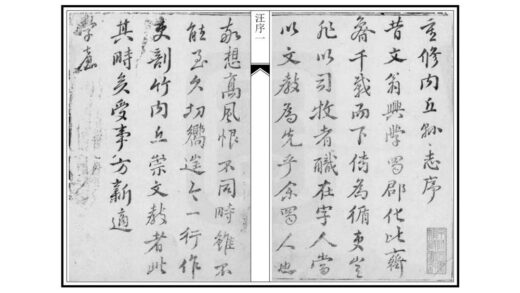 重修内丘縣志序
昔文翁興學蜀郡化比齊
魯千載而下傳為循吏豈
非以司牧者職在字人當
以文教為先乎余蜀人也
汪序一
敬想高風恨不同時雖不
能至久切嚮進今一行作
吏剖竹内丘崇文教者此
其時矣受事方新適
學憲